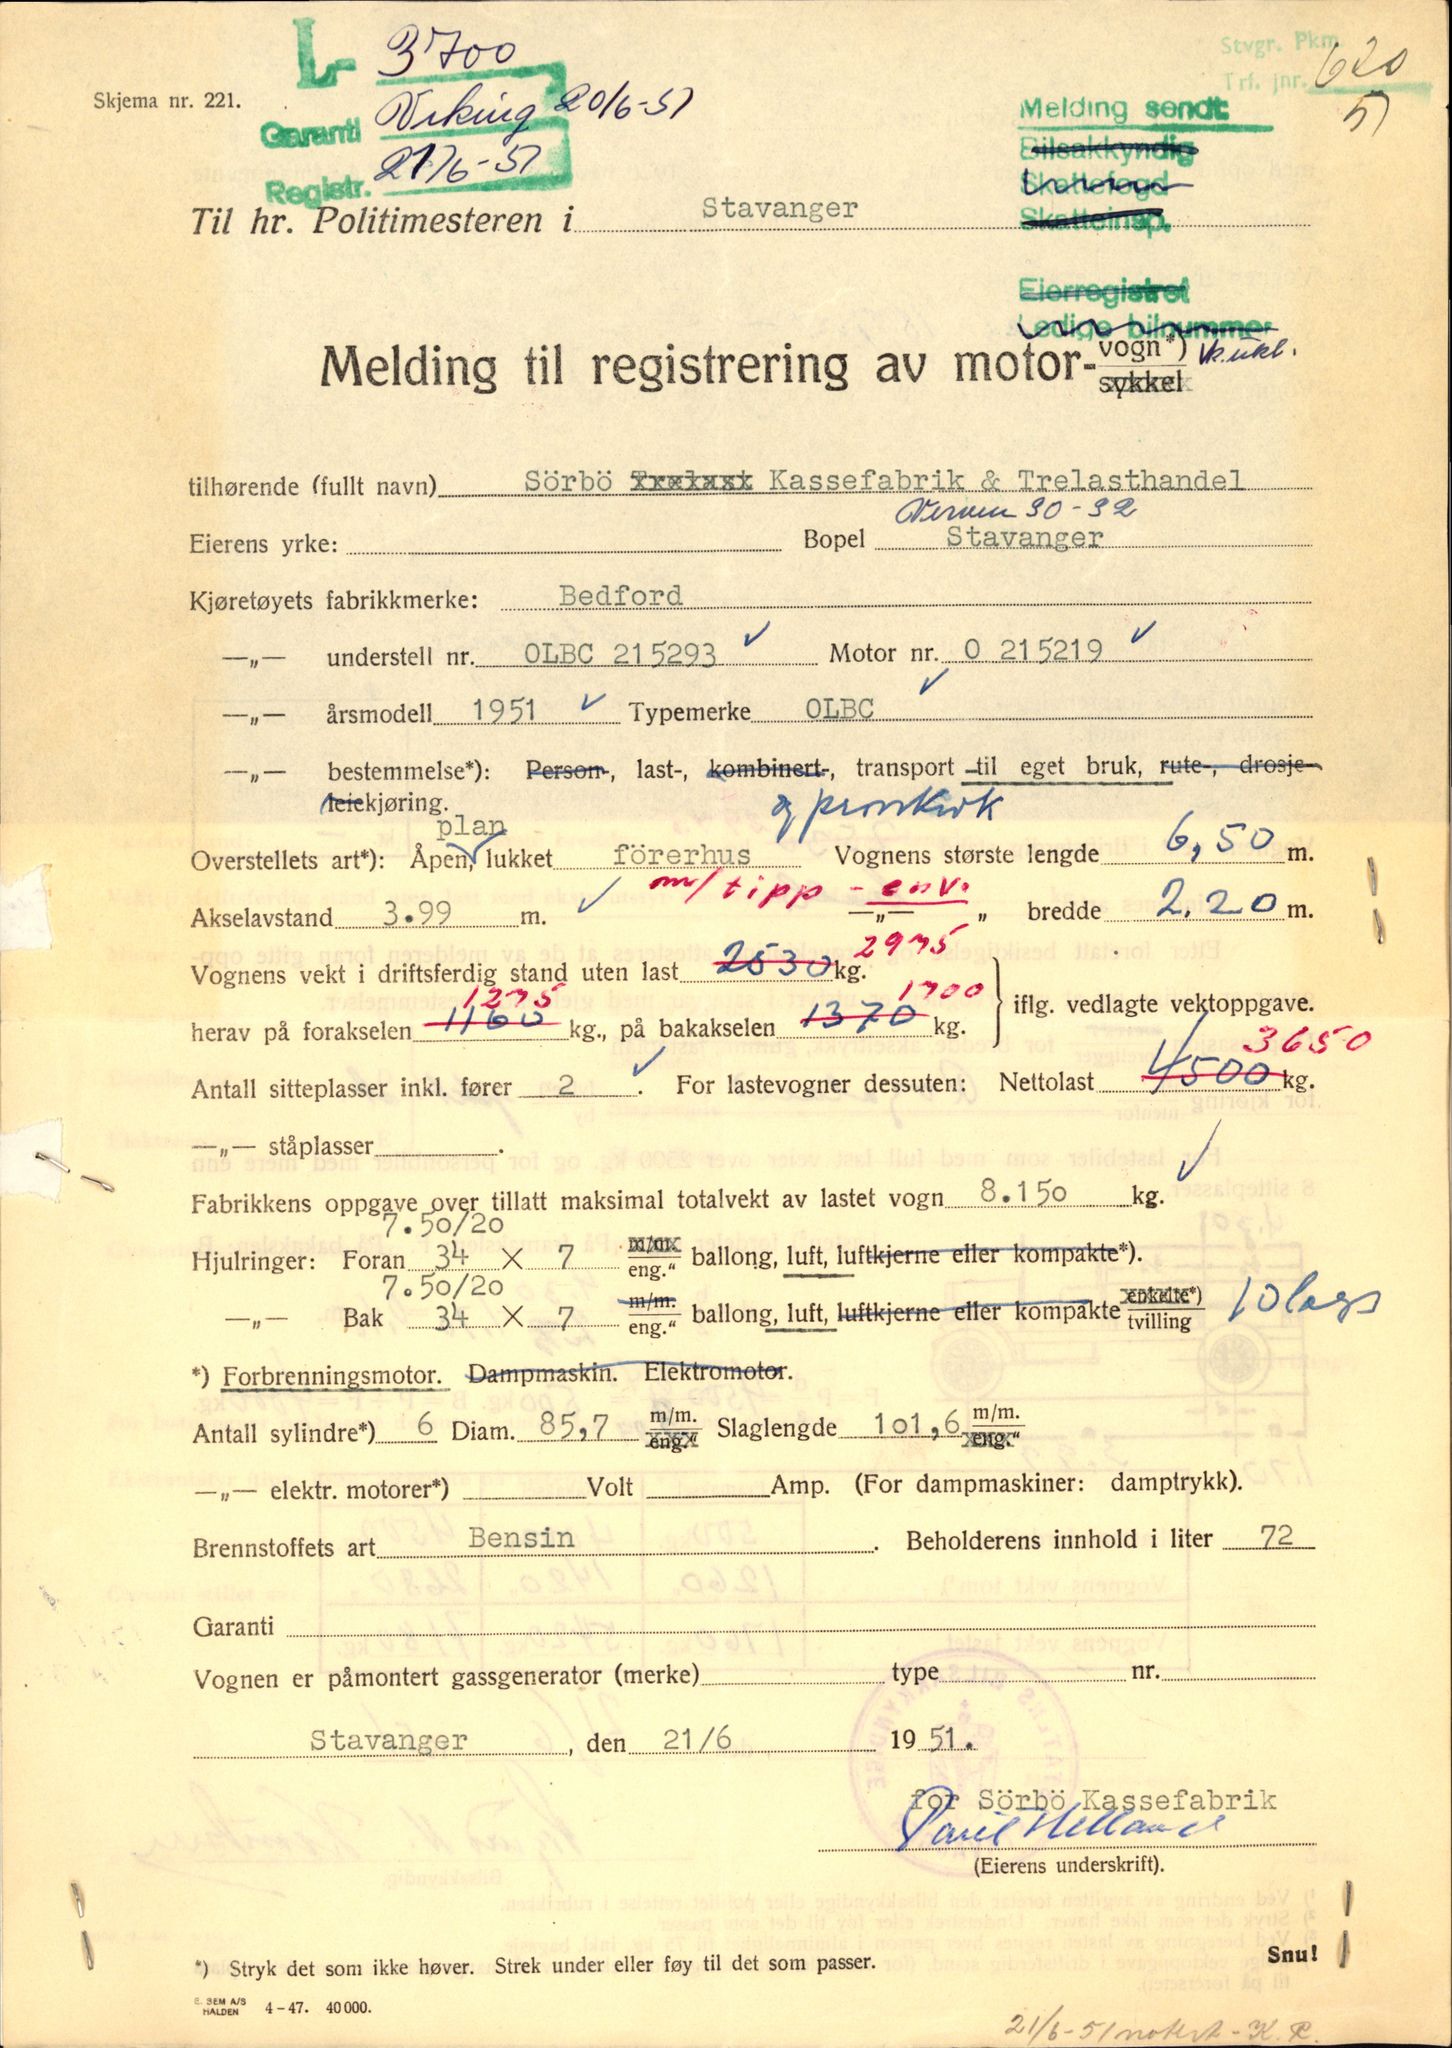 L- 3700
Stvgr. Pkm
Trf. jnr. 620
51
Skjema nr. 221.
Garanti Viking 20/6-51
Registr. 21/6-51
Melding sendt:
Bilsakkyndig
Skattefogd
Skatteinsp.
Eierregistret
Ledige bilnummer
Til hr. Politimesteren i Stavanger
Melding til registrering av motor- vogn*)
sykkel
tilhørende (fullt navn) Sörbö Trelast Kassefabrik & Trelasthandel
30-32
Eierens yrke: Bopel Stavanger
Kjøretøyets fabrikkmerke: Bedford
—„— understell nr. OLBC 215293 Motor nr. O 215219
—„— årsmodell 1951 Typemerke OLBC
—„— bestemmelse*): Person-, last-, kombinert-, transport til eget bruk, rute-, drosje-
leiekjøring.
plan
Overstellets art*): Åpen, lukket förerhus Vognens største lengde 6,50 m.
m/tipp - env.
Akselavstand 3.99 m. —„— „ bredde 2.20 m.
2975
Vognens vekt i driftsferdig stand uten last 2530 kg.
1275 1700
herav på forakselen 1160 kg., på bakakselen 1370 kg. iflg. vedlagte vektoppgave.
3650
Antall sitteplasser inkl. fører 2 . For lastevogner dessuten: Nettolast 4500 kg.
—„— ståplasser .
Fabrikkens oppgave over tillatt maksimal totalvekt av lastet vogn 8.150 kg.
7.50/20
Hjulringer: Foran 34 X 7 m/m. eng." ballong, luft, luftkjerne eller kompakte*).
7.50/20
—„— Bak 34 X 7 m/m. eng." ballong, luft, luftkjerne eller kompakte enkelte*) tvilling 10 lags
*) Forbrenningsmotor. Dampmaskin. Elektromotor.
Antall sylindre*) 6 Diam. 85,7 m/m. eng." Slaglengde 101,6 m/m. eng."
—„— elektr. motorer*) Volt Amp. (For dampmaskiner: damptrykk).
Brennstoffets art Bensin . Beholderens innhold i liter 72
Garanti
Vognen er påmontert gassgenerator (merke) type nr.
Stavanger, den 21/6 1951.
for Sörbö Kassefabrik
(Eierens underskrift).
*) Stryk det som ikke høver. Strek under eller føy til det som passer. Snu!
E. SEM A/S
HALDEN 4-47. 40 000.
21/6-51 notert - K. R.